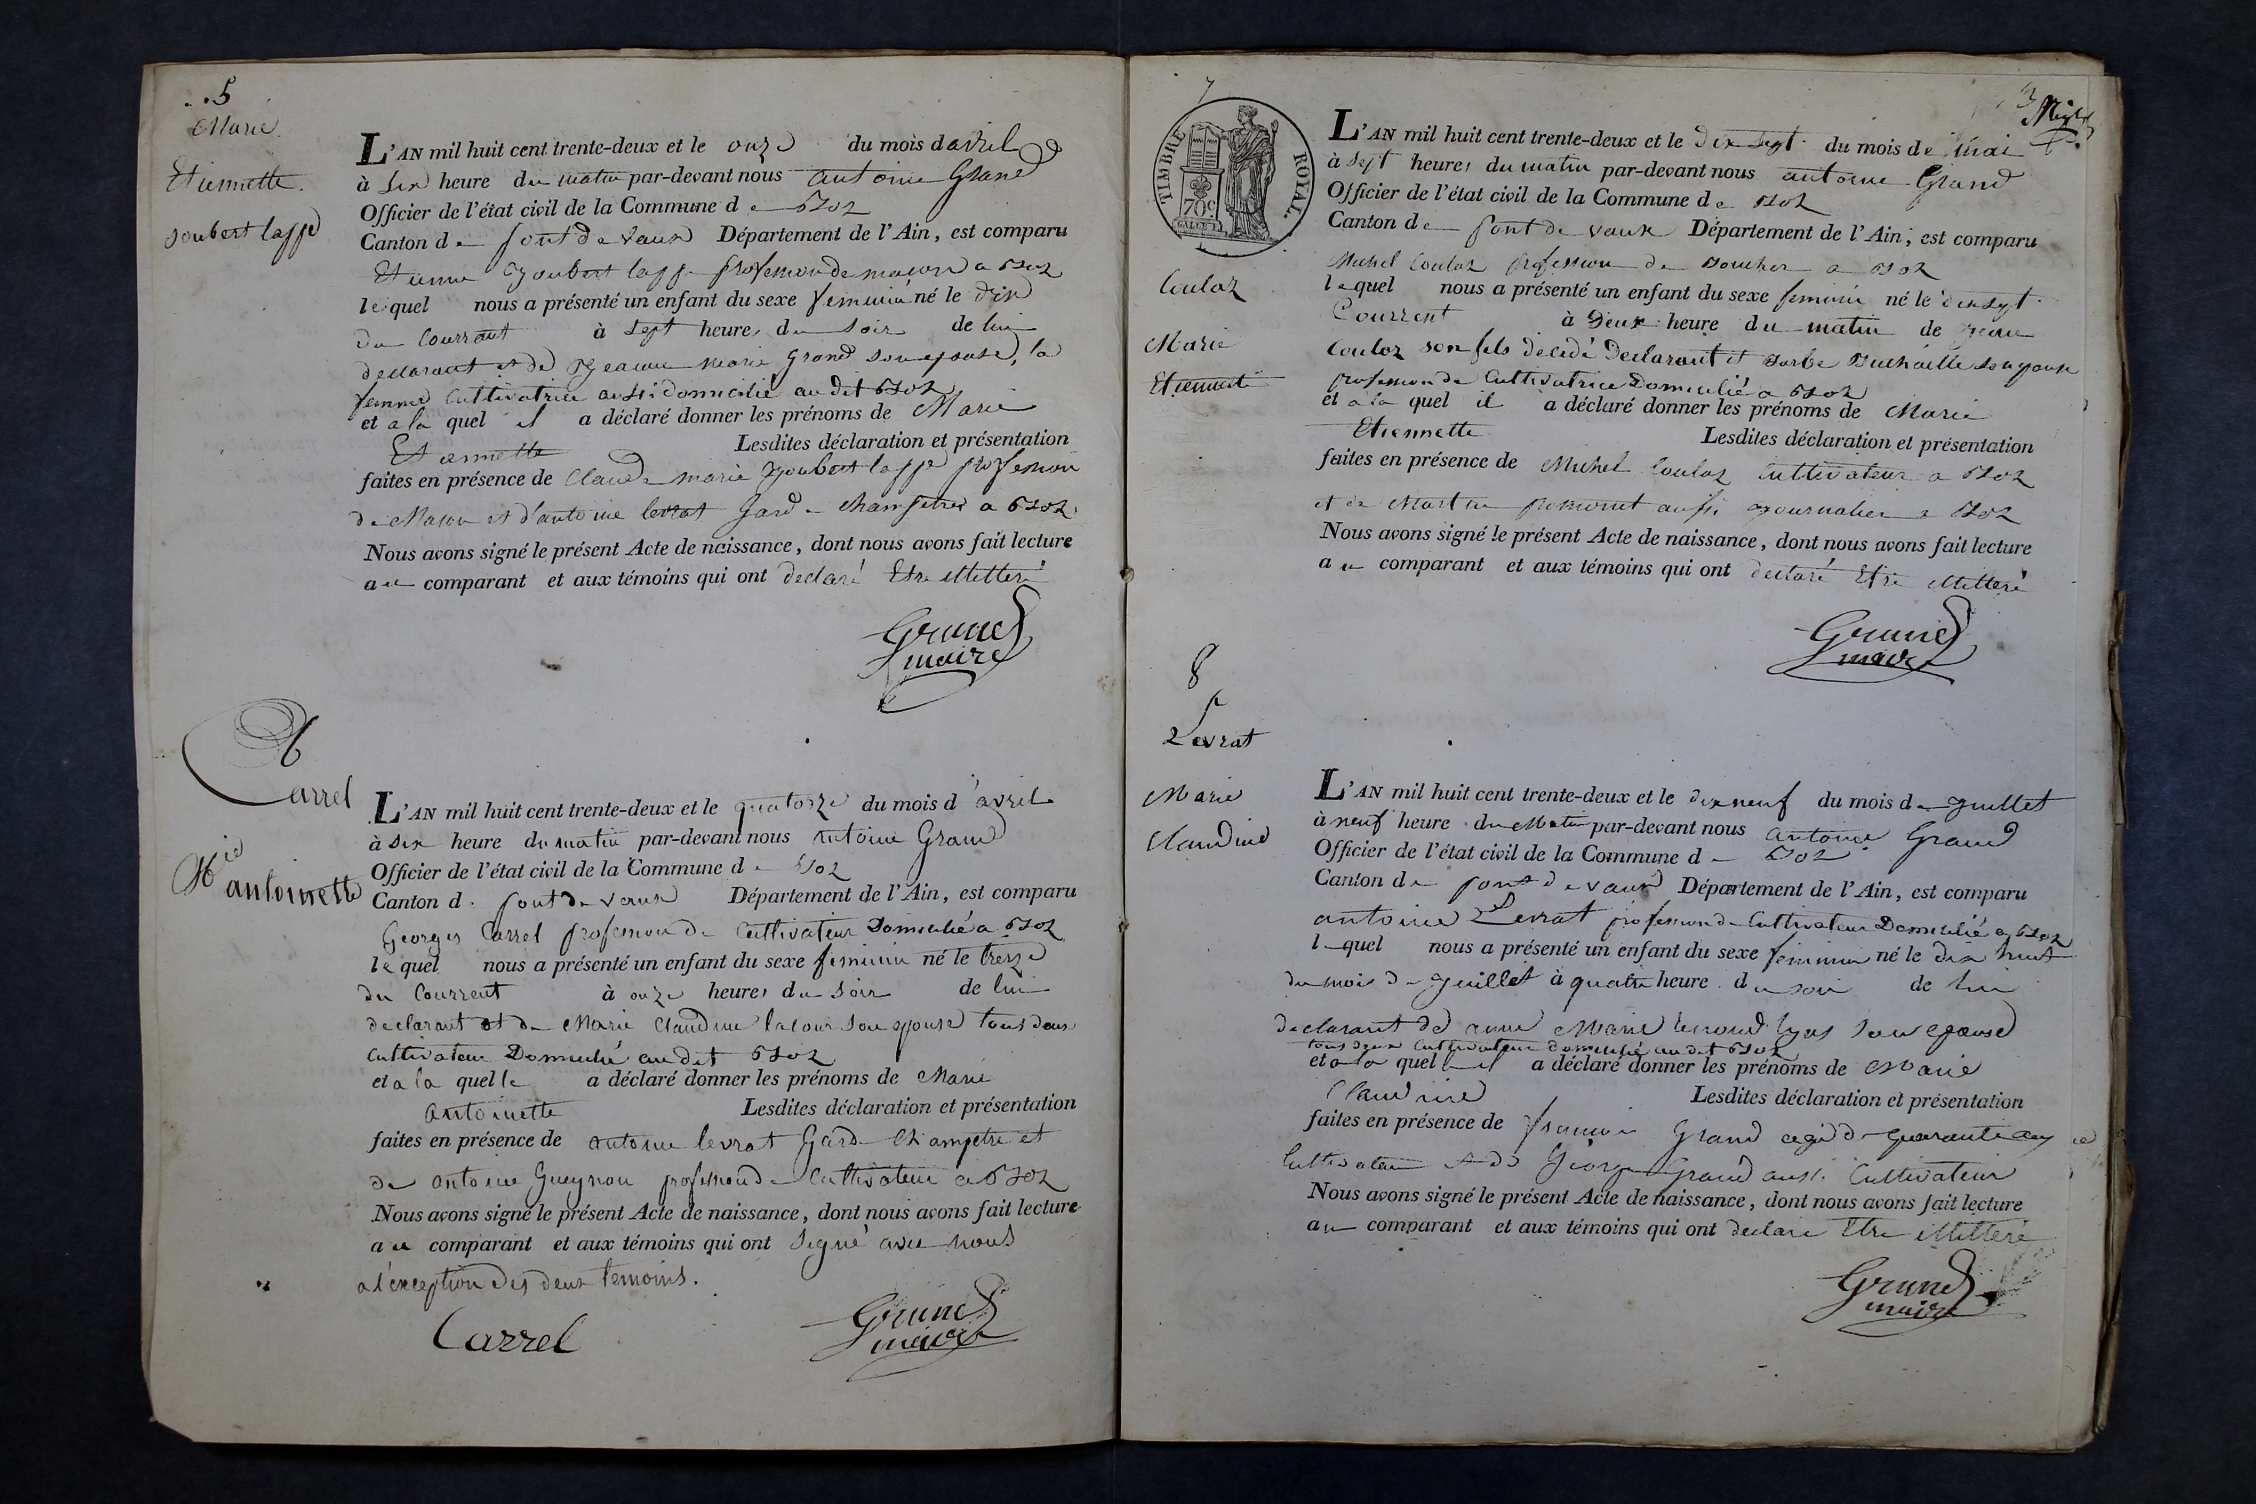 5
Marie
Etiennette.
Joubert laffe
L'AN mil huit cent trente-deux et le onze du mois d avril
à six heure du matin par-devant nous antoine Grand
Officier de l'état civil de la Commune d e
Canton d e pont de vaux Département de l'Ain, est comparu
Etienne Joubert laffe profession de maçon a
le quel nous a présenté un enfant du sexe feminin né le dix
du Courrant à sept heures du soir de lui
declarant et de Jeanne marie Grand son epouse, la
femme Cultivatrice aussi domicilié au dit
et a la quel il a déclaré donner les prénoms de Marie
Etiennette Lesdites déclaration et présentation
faites en présence de Claude marie Joubert laffe profession
de Maçon et d'antoine levrat Gard - champetre a
Nous avons signé le présent Acte de naissance, dont nous avons fait lecture
au comparant et aux témoins qui ont declaré Etre illitteré
Grand
maire
6
Carrel
Mie
antoinette
L'AN mil huit cent trente-deux et le quatorze du mois d'avril
à six heure du matin par-devant nous antoine Grand
Officier de l'état civil de la Commune d e
Canton d. pont de vaux Département de l'Ain, est comparu
Georges Carrel profession de Cultivateur Domicilié a
le quel nous a présenté un enfant du sexe feminin né le treize
du Courrent à onze heures du soir de lui
declarant et de Marie Claudine lacour son epouse tous deux
Cultivateur Domicilié au dit
et a la quelle a déclaré donner les prénoms de Marie
antoinette Lesdites déclaration et présentation
faites en présence de antoine levrat Gard Champetre et
de antoine Gueynon profession de Cultivateur a
Nous avons signé le présent Acte de naissance, dont nous avons fait lecture
au comparant et aux témoins qui ont Signé avec nous
a l'exception des deux temoins.
Carrel
Grand
maire
7
TIMBRE ROYAL.
70c
Couloz
Marie
Etiennette
L'AN mil huit cent trente-deux et le dix sept du mois de mai
à sept heures du matin par-devant nous antoine Grand
Officier de l'état civil de la Commune d e
Canton d e pont de vaux Département de l'Ain, est comparu
Michel Couloz profession de a
lequel nous a présenté un enfant du sexe feminin né le dix sept
Courrent à Deux heure du matin de
Couloz son fils décédé Declarant et
profession de Cultivatrice Domicilié a
et a la quel il a déclaré donner les prénoms de Marie
Etiennette Lesdites déclaration et présentation
faites en présence de Michel Couloz Cultivateur a
et de Martin aussi Journalier a
Nous avons signé le présent Acte de naissance, dont nous avons fait lecture
au comparant et aux témoins qui ont declaré Etre illitteré
Grand
maire
8
Levrat
Marie
Claudine
L'AN mil huit cent trente-deux et le dix neuf du mois de Juillet
à neuf heure du Matin par-devant nous antoine Grand
Officier de l'état civil de la Commune d e
Canton de pont de vaux Département de l'Ain, est comparu
antoine Levrat profession de Cultivateur Domicilié a
lequel nous a présenté un enfant du sexe feminin né le dix huit
du mois de Juillet à quatre heure du soir de lui
declarant de anne Marie son epouse
tous deux Cultivateur domicilié au dit
et a la quel il a déclaré donner les prénoms de Marie
Claudine Lesdites déclaration et présentation
faites en présence de francois Grand agé de quarante
Cultivateur et de George Grand aussi Cultivateur
Nous avons signé le présent Acte de naissance, dont nous avons fait lecture
au comparant et aux témoins qui ont declaré Etre illitteré
Grand
maire